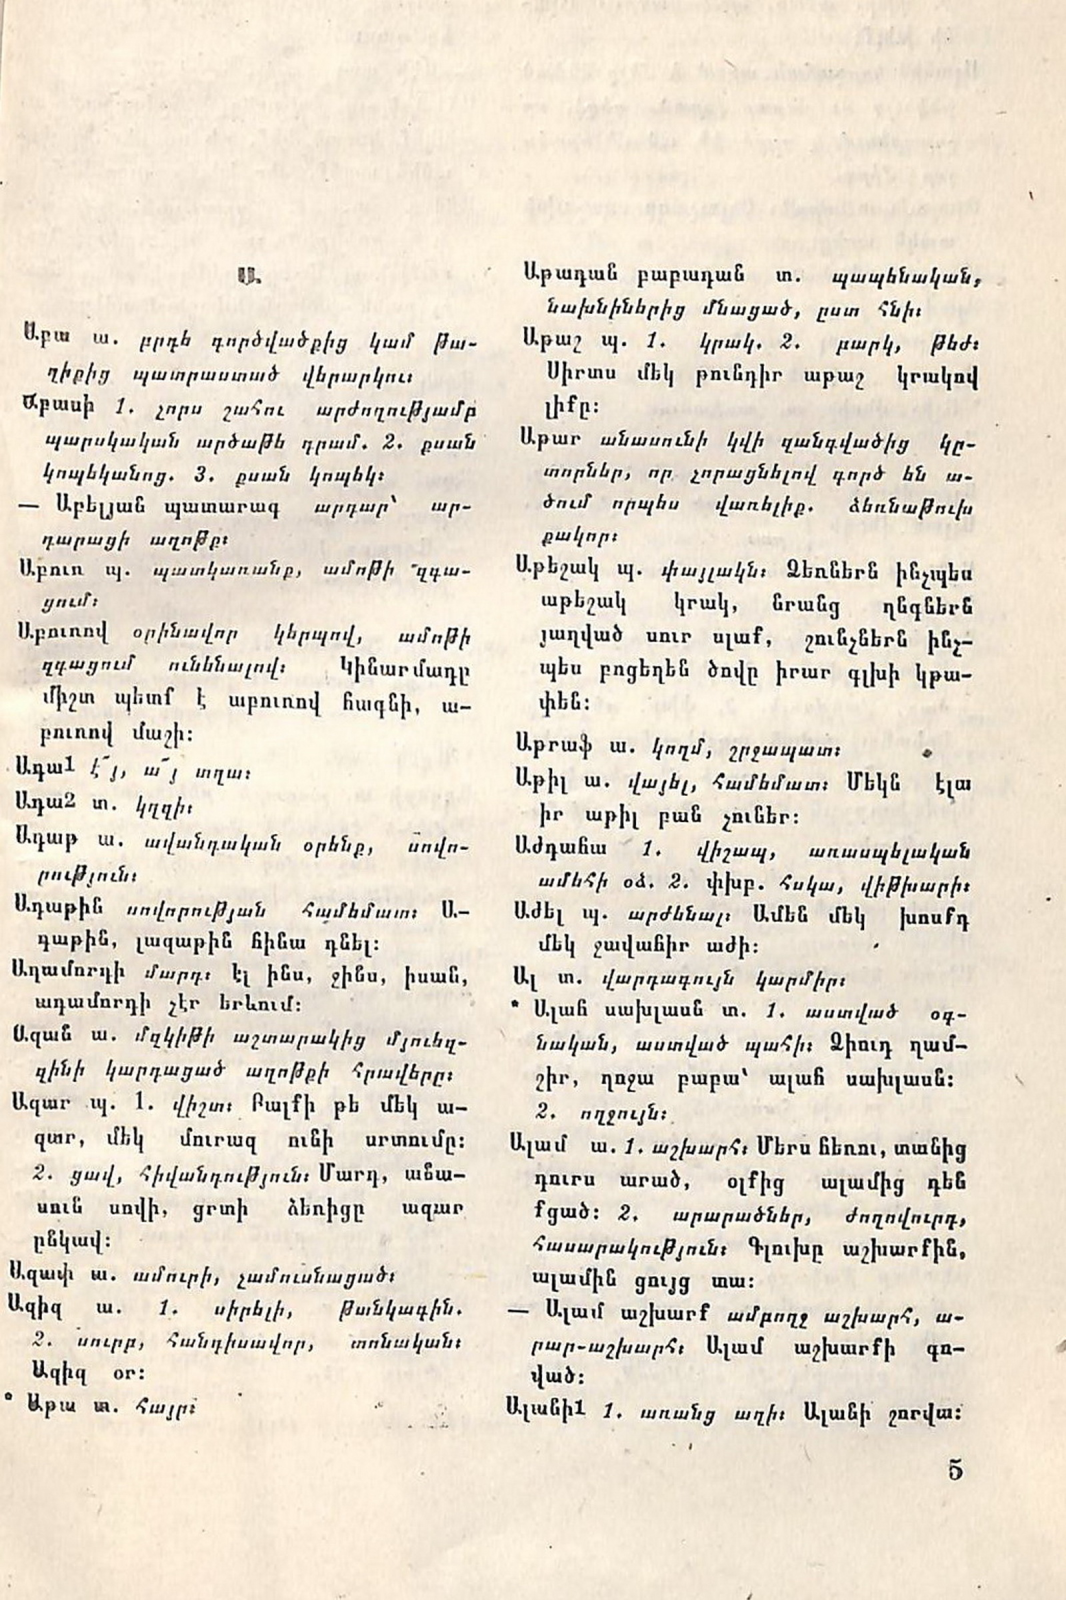 Ա.
Աբա ա. բրդե գործվածքից կամ թա-
ղիքից պատրաստած վերարկու։
Աբասի 1. չորս շահու արժողությամբ
պարսկական արծաթե դրամ. 2. քսան
կոպեկանոց. 3. քսան կոպեկ։
— Աբելյան պատարագ արդար՝ ար-
դարացի աղոթք։
Աբուռ պ. պատկառանք, ամոթի զգա-
ցում։
Աբուռով օրինավոր կերպով, ամոթի
զգացում ունենալով։ Կինարմադը
միշտ պետք է աբուռով հագնի, ա-
բուռով մաշի։
Ադա1 է՜յ, ա՜յ տղա։
Ադա2 տ. կղզի։
Ադաթ ա. ավանդական օրենք, սովո-
րություն։
Ադաթին սովորության համեմատ։ Ա-
դաթին, լազաթին հինա դնել։
Ադամորդի մարդ։ Էլ ինս, ջինս, իսան,
ադամորդի չէր երևում։
Ազան ա. մզկիթի աշտարակից մյուեզ-
զինի կարդացած աղոթքի հրավերը։
Ազար պ. 1. վիշտ։ Բալքի թե մեկ ա-
զար, մեկ մուրազ ունի սրտումը։
2. ցավ, հիվանդություն։ Մարդ, անա-
սուն սովի, ցրտի ձեռիցը ազար
ընկավ։
Ազափ ա. ամուրի, չամուսնացած։
Ազիզ ա. 1. սիրելի, թանկագին.
2. սուրբ, հանդիսավոր, տոնական։
Ազիզ օր։
* Աթա տ. հայր։
Աթադան բաբադան տ. պապենական,
նախնիներից մնացած, ըստ հնի։
Աթաշ պ. 1. կրակ. 2. բարկ, թեժ։
Սիրտս մեկ թունդիր աթաշ կրակով
լիքը։
Աթար անասունի կվի զանգվածից կը-
տորներ, որ չորացնելով գործ են ա-
ծում որպես վառելիք. ձեռնաթուխ
քակոր։
Աթեշակ պ. փայլակն։ Ձեռներն ինչպես
աթեշակ կրակ, նրանց ղնգներն
յաղված սուր սլաք, շունչներն ինչ-
պես բոցեղեն ծովը իրար գլխի կթա-
փեն։
Աթրաֆ ա. կողմ, շրջապատ։
Աթիլ ա. վայել, համեմատ։ Մեկն էլա
իր աթիլ բան չուներ։
Աժդահա 1. վիշապ, առասպելական
ամեհի օձ. 2. փխբ. հսկա, վիթխարի։
Աժել պ. արժենալ։ Ամեն մեկ խոսքդ
մեկ ջավահիր աժի։
Ալ տ. վարդագույն կարմիր։
* Ալահ սախլասն տ. 1. աստված օգ-
նական, աստված պահի։ Ձիուդ ղամ-
շիր, ղոջա բաբա՝ ալահ սախլասն։
2. ողջույն։
Ալամ ա. 1. աշխարհ։ Մերս հեռու, տանից
դուրս արած, օլքից ալամից դեն
քցած։ 2. արարածներ, ժողովուրդ,
հասարակություն։ Գլուխը աշխարքին,
ալամին ցույց տա։
— Ալամ աշխարք ամբողջ աշխարհ, ա-
րար-աշխարհ։ Ալամ աշխարքի գո-
ված։
Ալանի1 1. առանց աղի։ Ալանի շորվա։
5